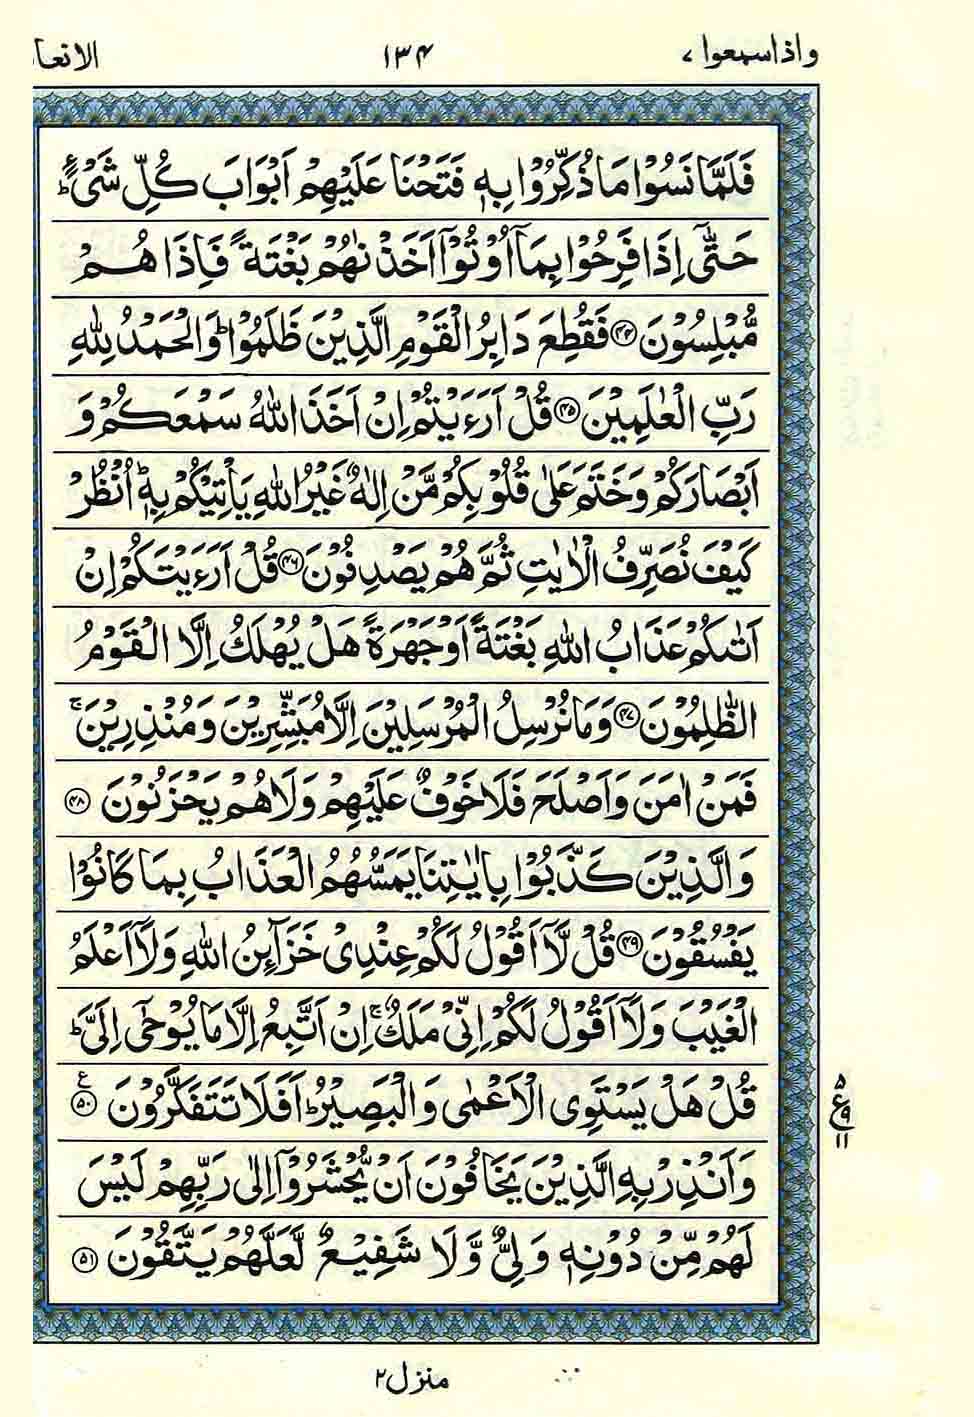 واذاسمعوا ٧ ١٣٤ الانعا
فَلَمَّا نَسُوْا مَا ذُكِّرُوْا بِهٖ فَتَحْنَا عَلَيْهِمْ اَبْوَابَ كُلِّ شَیْءٍ ؕ
حَتّٰۤی اِذَا فَرِحُوْا بِمَاۤ اُوْتُوْۤا اَخَذْنٰهُمْ بَغْتَةً فَاِذَا هُمْ
مُّبْلِسُوْنَ ﴿۴۴﴾ فَقُطِعَ دَابِرُ الْقَوْمِ الَّذِیْنَ ظَلَمُوْا ؕ وَالْحَمْدُ لِلّٰهِ
رَبِّ الْعٰلَمِیْنَ ﴿۴۵﴾ قُلْ اَرَءَیْتُمْ اِنْ اَخَذَ اللّٰهُ سَمْعَكُمْ وَ
اَبْصَارَكُمْ وَخَتَمَ عَلٰی قُلُوْبِكُمْ مَّنْ اِلٰهٌ غَیْرُ اللّٰهِ یَاْتِیْكُمْ بِهٖ ؕ اُنْظُرْ
كَیْفَ نُصَرِّفُ الْاٰیٰتِ ثُمَّ هُمْ یَصْدِفُوْنَ ﴿۴۶﴾ قُلْ اَرَءَیْتَكُمْ اِنْ
اَتٰىكُمْ عَذَابُ اللّٰهِ بَغْتَةً اَوْ جَهْرَةً هَلْ یُهْلَكُ اِلَّا الْقَوْمُ
الظّٰلِمُوْنَ ﴿۴۷﴾ وَمَا نُرْسِلُ الْمُرْسَلِیْنَ اِلَّا مُبَشِّرِیْنَ وَمُنْذِرِیْنَ ۚ
فَمَنْ اٰمَنَ وَاَصْلَحَ فَلَا خَوْفٌ عَلَیْهِمْ وَلَا هُمْ یَحْزَنُوْنَ ﴿۴۸﴾
وَالَّذِیْنَ كَذَّبُوْا بِاٰیٰتِنَا یَمَسُّهُمُ الْعَذَابُ بِمَا كَانُوْا
یَفْسُقُوْنَ ﴿۴۹﴾ قُلْ لَّاۤ اَقُوْلُ لَكُمْ عِنْدِیْ خَزَآئِنُ اللّٰهِ وَلَاۤ اَعْلَمُ
الْغَیْبَ وَلَاۤ اَقُوْلُ لَكُمْ اِنِّیْ مَلَكٌ ۚ اِنْ اَتَّبِعُ اِلَّا مَا یُوْحٰۤی اِلَیَّ ؕ
قُلْ هَلْ یَسْتَوِی الْاَعْمٰی وَالْبَصِیْرُ ؕ اَفَلَا تَتَفَكَّرُوْنَ ﴿۵۰﴾ ع
۵
ع۹
۱۱
وَاَنْذِرْ بِهِ الَّذِیْنَ یَخَافُوْنَ اَنْ یُّحْشَرُوْۤا اِلٰی رَبِّهِمْ لَیْسَ
لَهُمْ مِّنْ دُوْنِهٖ وَلِیٌّ وَّلَا شَفِیْعٌ لَّعَلَّهُمْ یَتَّقُوْنَ ﴿۵۱﴾
منزل۲